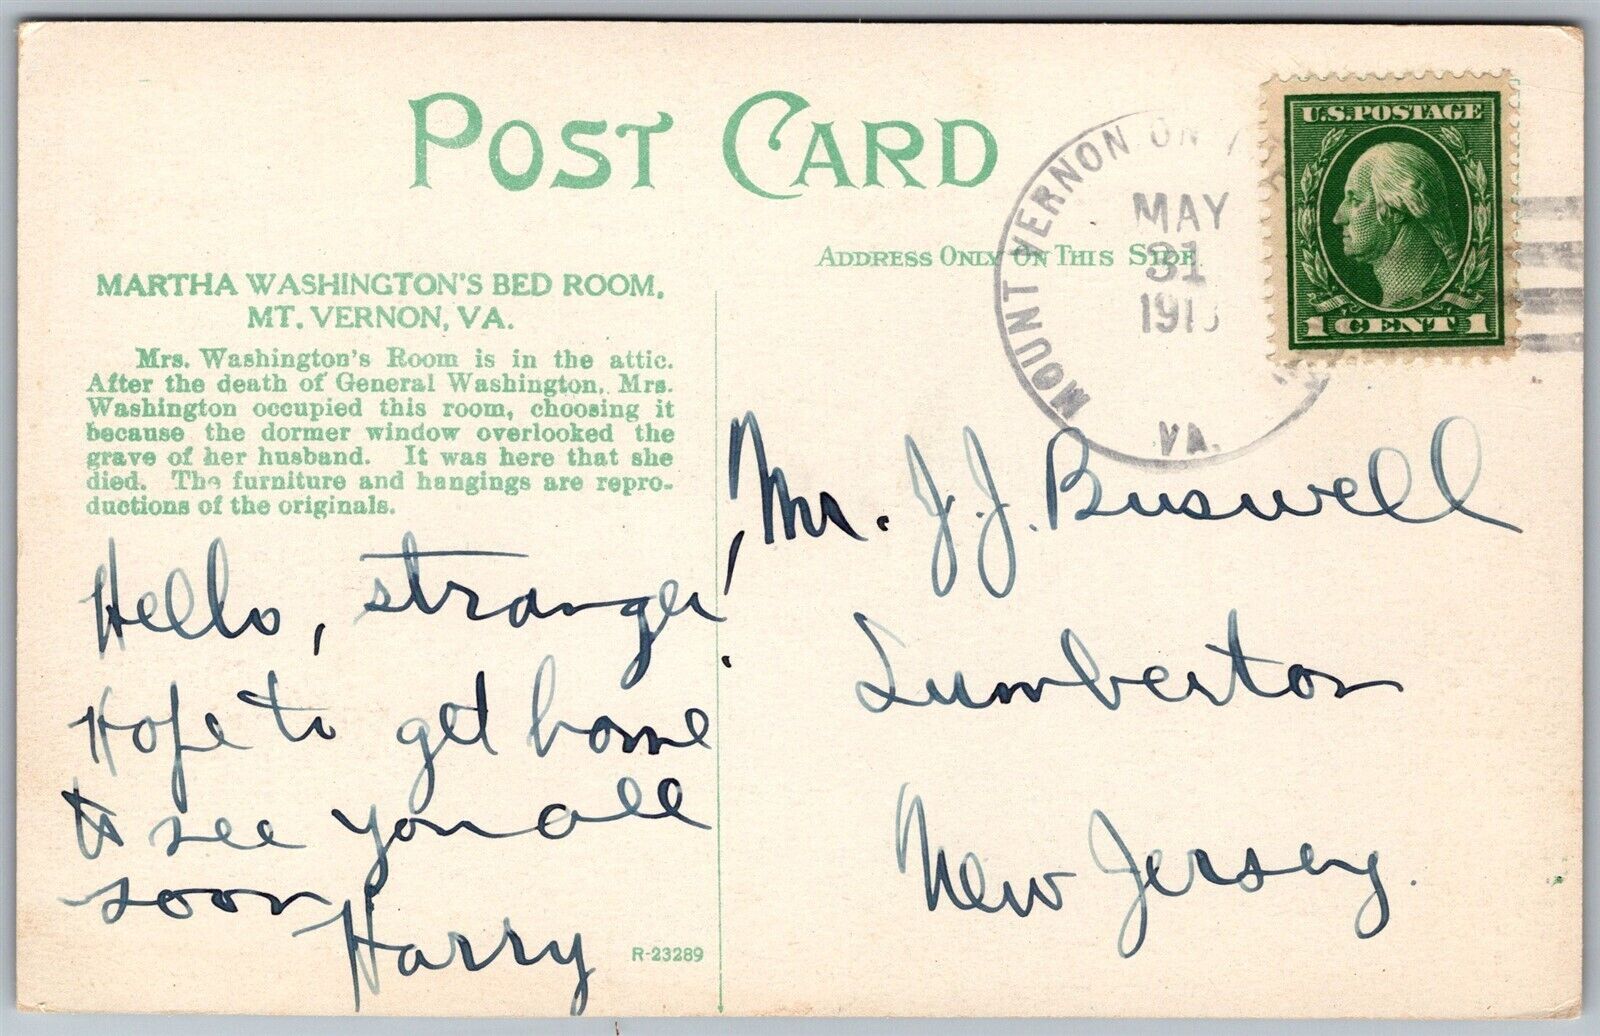 POST CARD
ADDRESS ONLY ON THIS SIDE
MARTHA WASHINGTON'S BED ROOM,
MT. VERNON, VA.
Mrs. Washington's Room is in the attic.
After the death of General Washington, Mrs.
Washington occupied this room, choosing it
because the dormer window overlooked the
grave of her husband. It was here that she
died. The furniture and hangings are repro-
ductions of the originals.
Hello, stranger!
Hope to get home
to see you all
soon
Harry
R-23289
MOUNT VERNON ON
MAY
31
VA.
U.S. POSTAGE
1 CENT 1
Mr. J. J. Buswell
Lumberton
New Jersey.